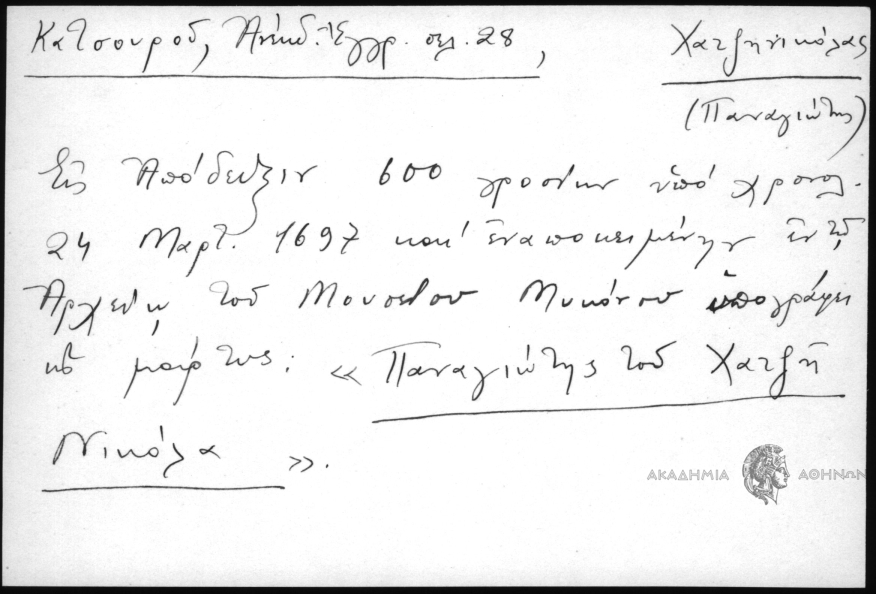 Κατσουροῦ, Ἀνέκδ. Ἔγγρ. σελ. 28,
Χατζηνικόλας
(Παναγιώτης)
Εἰς Ἀπόδειξιν 600 γροσίων ὑπό χρονολ.
24 Μαρτ. 1697 καί ἐναποκειμένην ἐν τῷ
Ἀρχείῳ τοῦ Μουσείου Μυκόνου ὑπογράφει
ὡς μάρτυς: «Παναγιώτης τοῦ Χατζῆ
Νικόλα».
ΑΚΑΔΗΜΙΑ ΑΘΗΝΩΝ